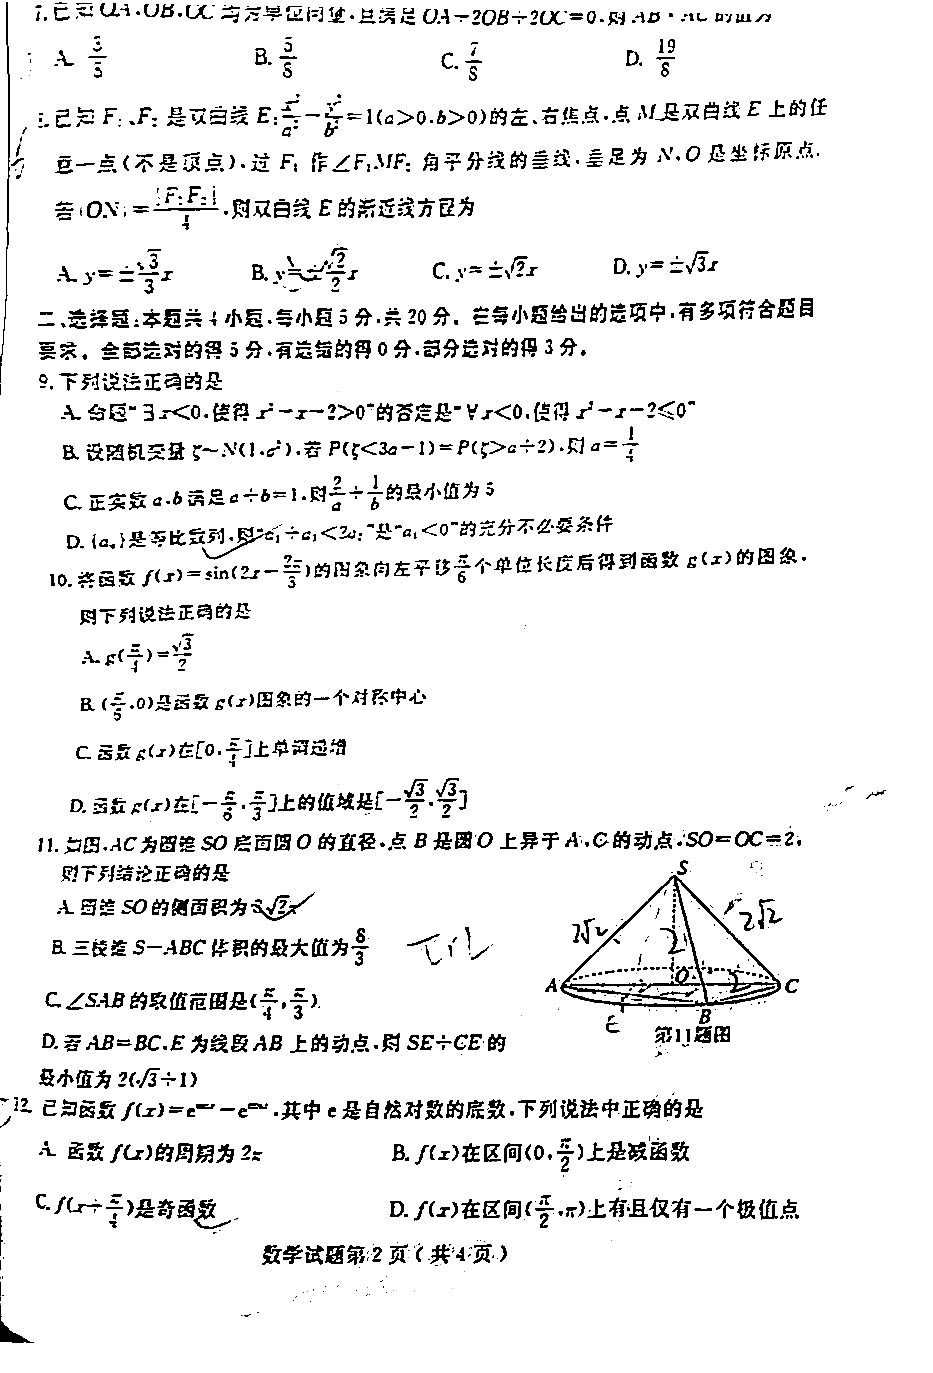 7.已知OA,OB,OC均为单位向量,且满足OA+2OB+2OC=0,则AB·AC的值为
A. 3/8
B. 5/8
C. 7/8
D. 19/8
已知F₁、F₂是双曲线E:x²/a²-y²/b²=1(a>0,b>0)的左、右焦点,点M是双曲线E上的任
意一点(不是顶点),过F₁作∠F₁MF₂角平分线的垂线,垂足为N,O是坐标原点.
若|ON|=|F₁F₂|/4,则双曲线E的渐近线方程为
A. y=±√3/3x
B. y=±√2/2x
C. y=±√2x
D. y=±√3x
二、选择题:本题共4小题,每小题5分,共20分。在每小题给出的选项中,有多项符合题目
要求。全部选对的得5分,有选错的得0分,部分选对的得3分。
9.下列说法正确的是
A.命题"∃x<0,使得x²-x-2>0"的否定是"∀x<0,使得x²-x-2≤0"
B.设随机变量ζ~N(1,σ²),若P(ζ<3a-1)=P(ζ>a+2),则a=1/4
C.正实数a,b满足a+b=1,则2/a+1/b的最小值为5
D.{aₙ}是等比数列,则"a₁+a₃<2a₂"是"a₁<0"的充分不必要条件
10.将函数f(x)=sin(2x-2π/3)的图象向左平移π/6个单位长度后得到函数g(x)的图象,
则下列说法正确的是
A. g(π/4)=√3/2
B. (π/6,0)是函数g(x)图象的一个对称中心
C.函数g(x)在[0,π/4]上单调递增
D.函数g(x)在[-π/6,π/3]上的值域是[-√3/2,√3/2]
11.如图,AC为圆锥SO底面圆O的直径,点B是圆O上异于A,C的动点,SO=OC=2,
则下列结论正确的是
A.圆锥SO的侧面积为
B.三棱锥S-ABC体积的最大值为8/3
πrl
C.∠SAB的取值范围是(π/4,π/3)
D.若AB=BC,E为线段AB上的动点,则SE+CE的
最小值为2(√3+1)
S
2√2
2√2
2
2
A
O
C
B
E
第11题图
12.已知函数f(x)=e^cosx-e^sinx,其中e是自然对数的底数,下列说法中正确的是
A.函数f(x)的周期为2π
B.f(x)在区间(0,π/2)上是减函数
C.f(x+π/4)是奇函数
D.f(x)在区间(π/2,π)上有且仅有一个极值点
数学试题第2页(共4页)